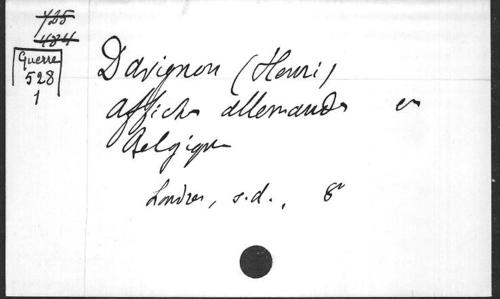 425
484
Guerre
528
1
Davignon (Henri)
Affiches allemandes en
Belgique
Londres, s.d., 8°